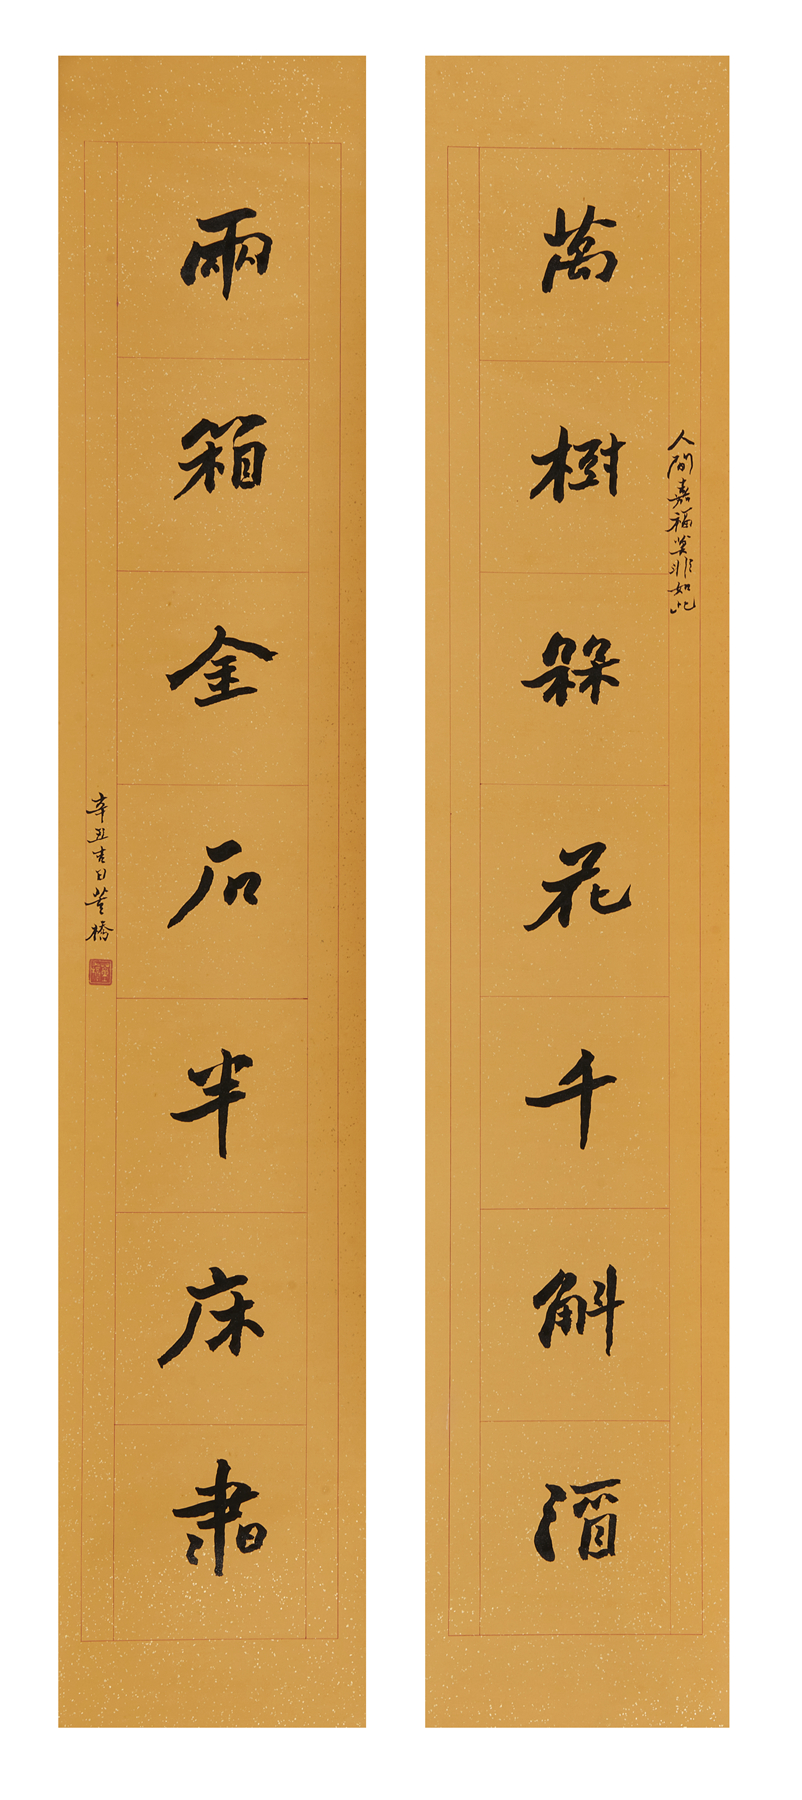 人間嘉福莫非如此
萬樹槑花千斛酒
兩箱金石半床書
辛丑吉日董橋